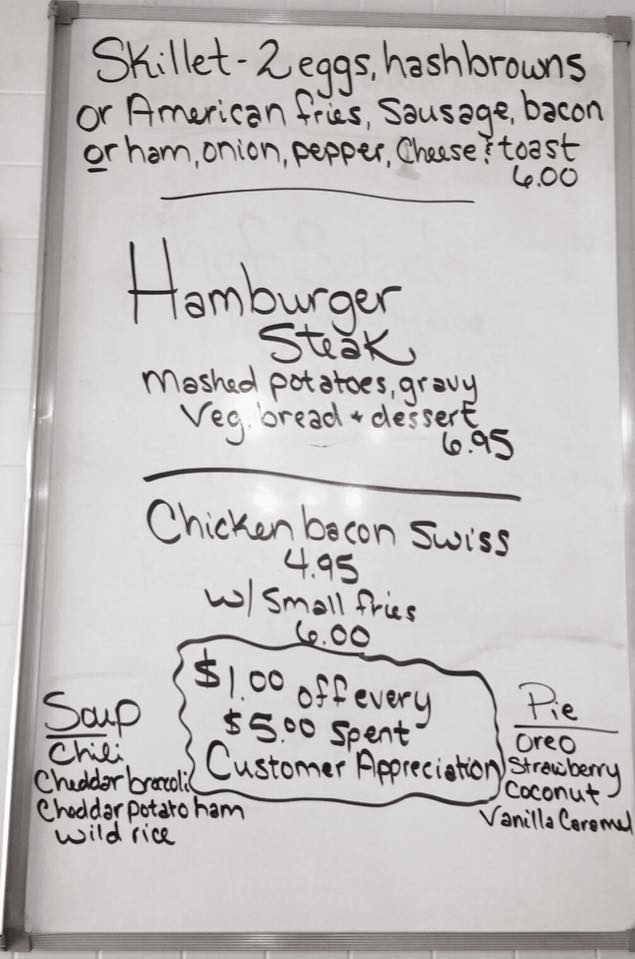 Skillet - 2 eggs, hashbrowns
or American fries, Sausage, bacon
or ham, onion, pepper, Cheese & toast
6.00
Hamburger
Steak
Mashed potatoes, gravy
Veg. bread + dessert
6.95
Chicken bacon Swiss
4.95
w/ Small fries
6.00
$1.00 off every
$5.00 Spent
Customer Appreciation
Soup
Chili
Cheddar broccoli
Cheddar potato ham
Wild rice
Pie
Oreo
Strawberry
Coconut
Vanilla Caramel